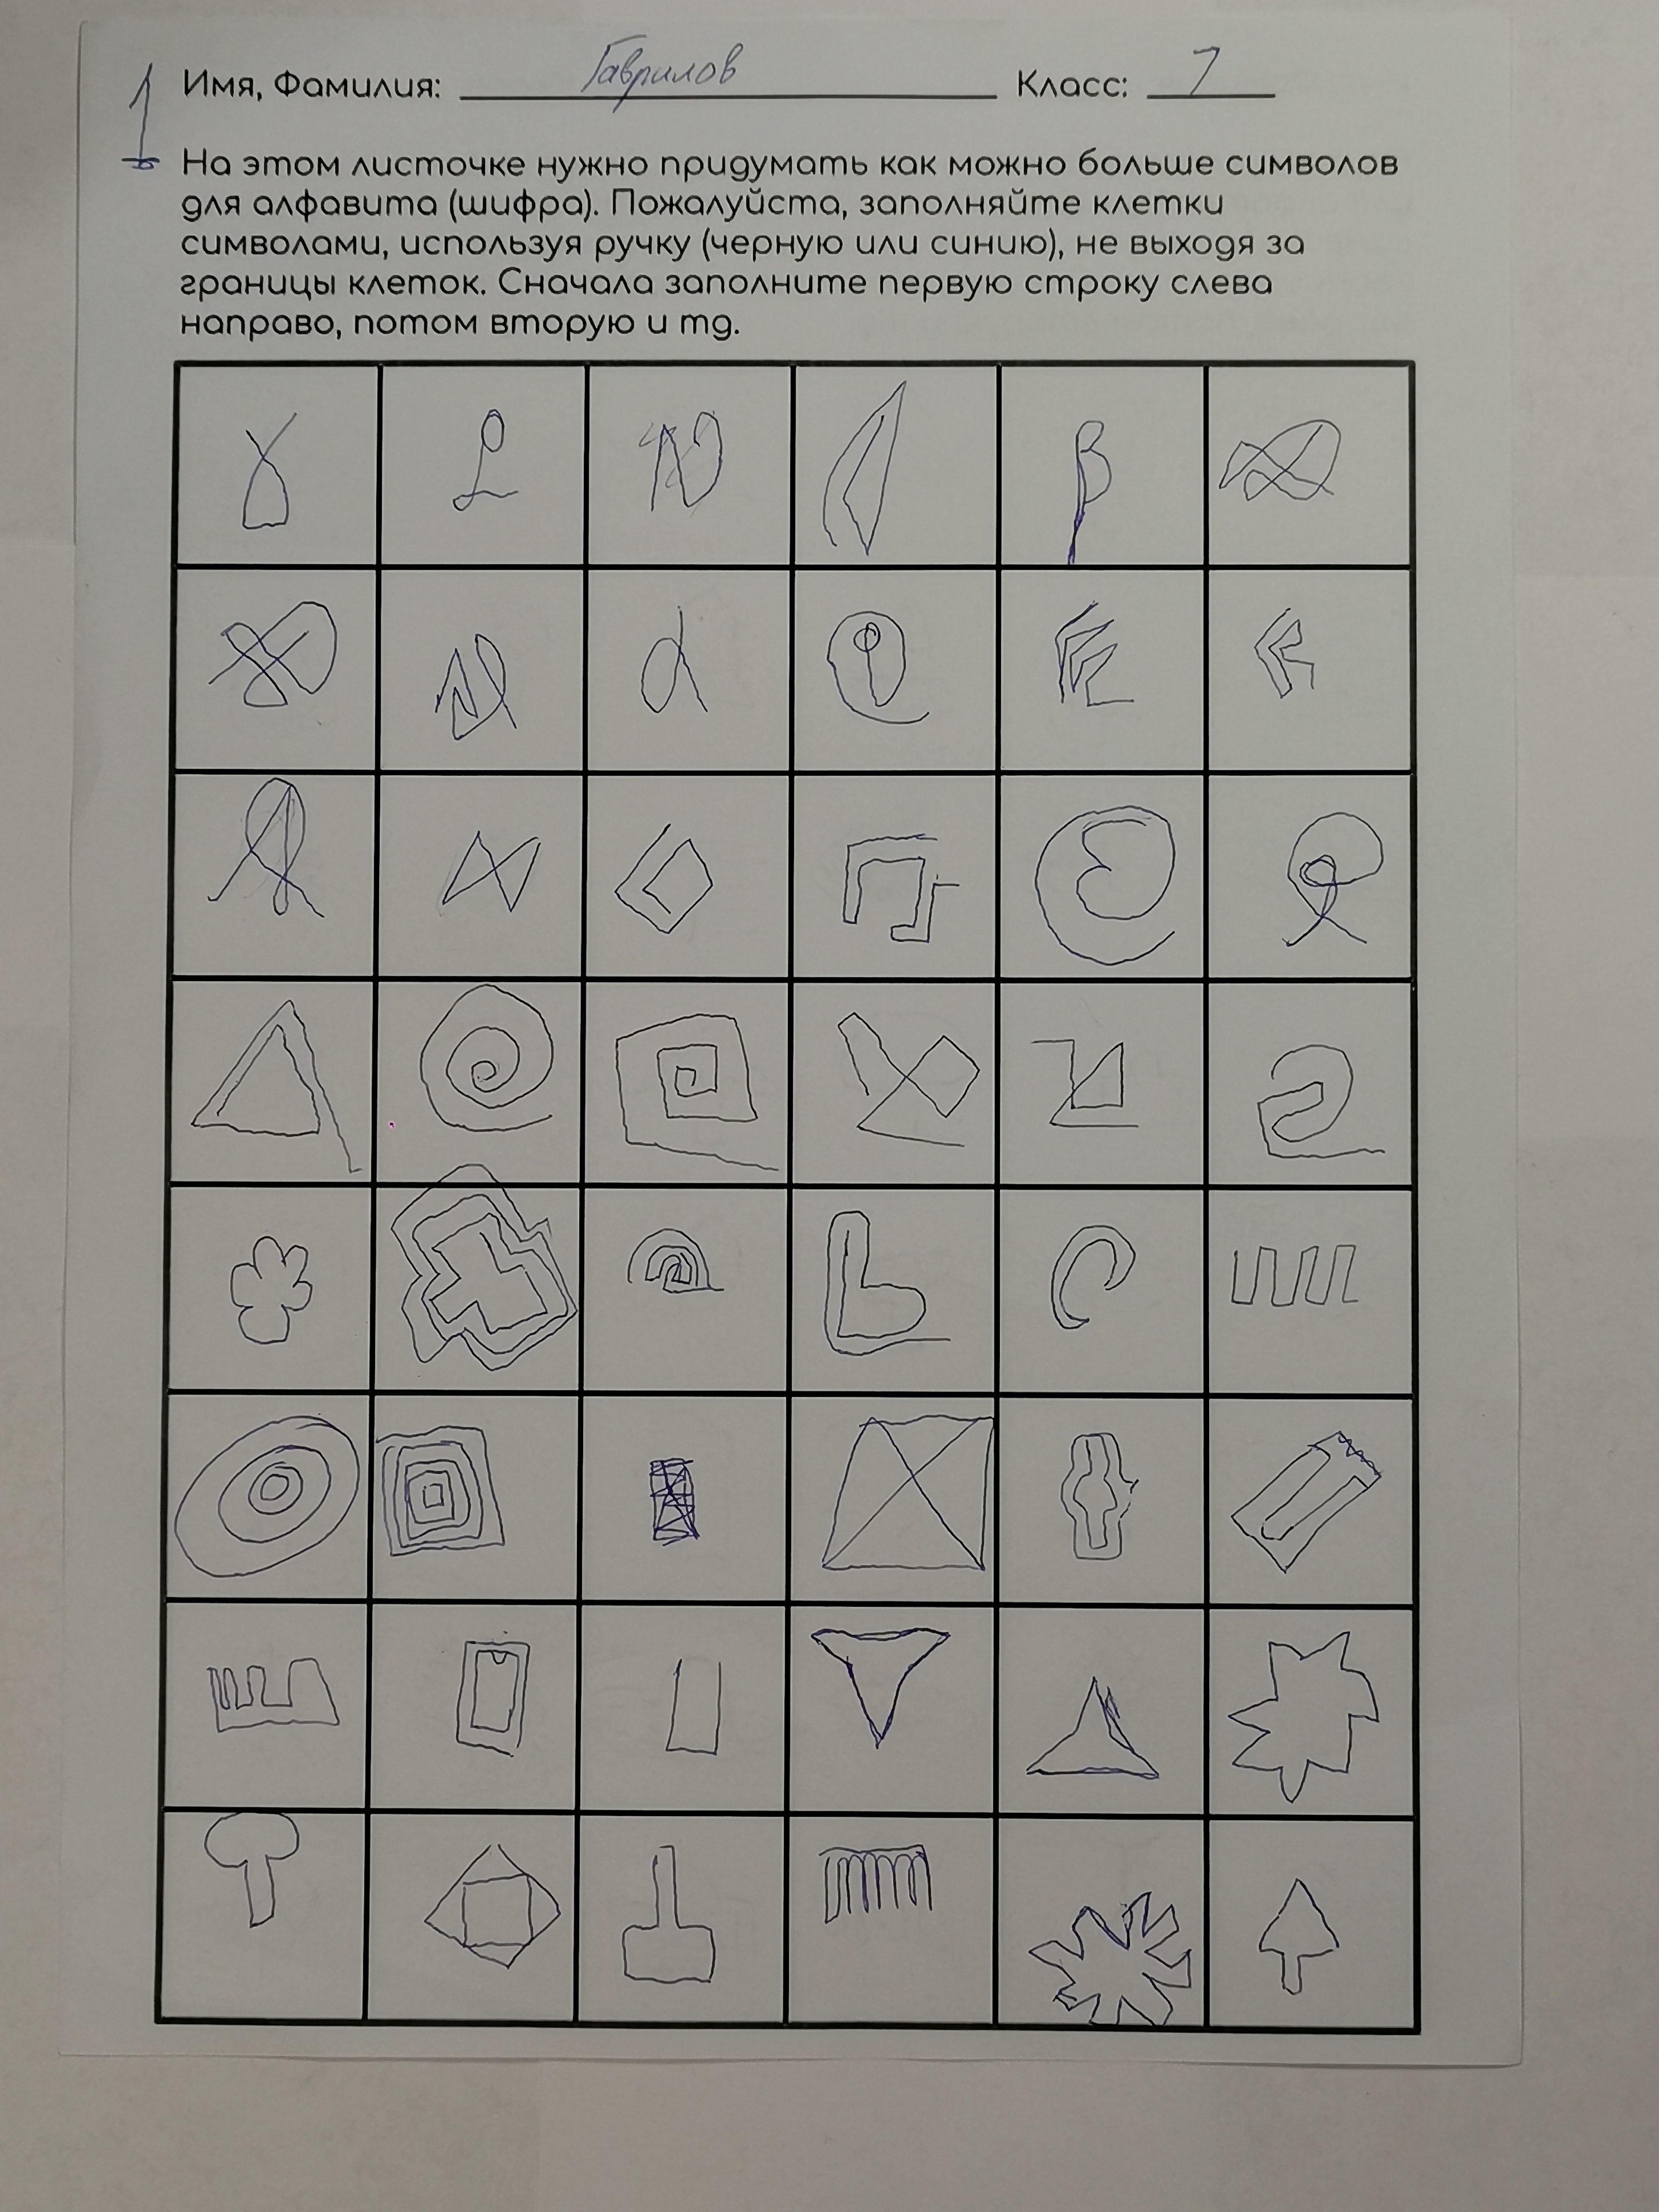 1 Имя, Фамилия: Гаврилов Класс: 7
На этом листочке нужно придумать как можно больше символов
для алфавита (шифра). Пожалуйста, заполняйте клетки
символами, используя ручку (черную или синию), не выходя за
границы клеток. Сначала заполните первую строку слева
направо, потом вторую и тд.